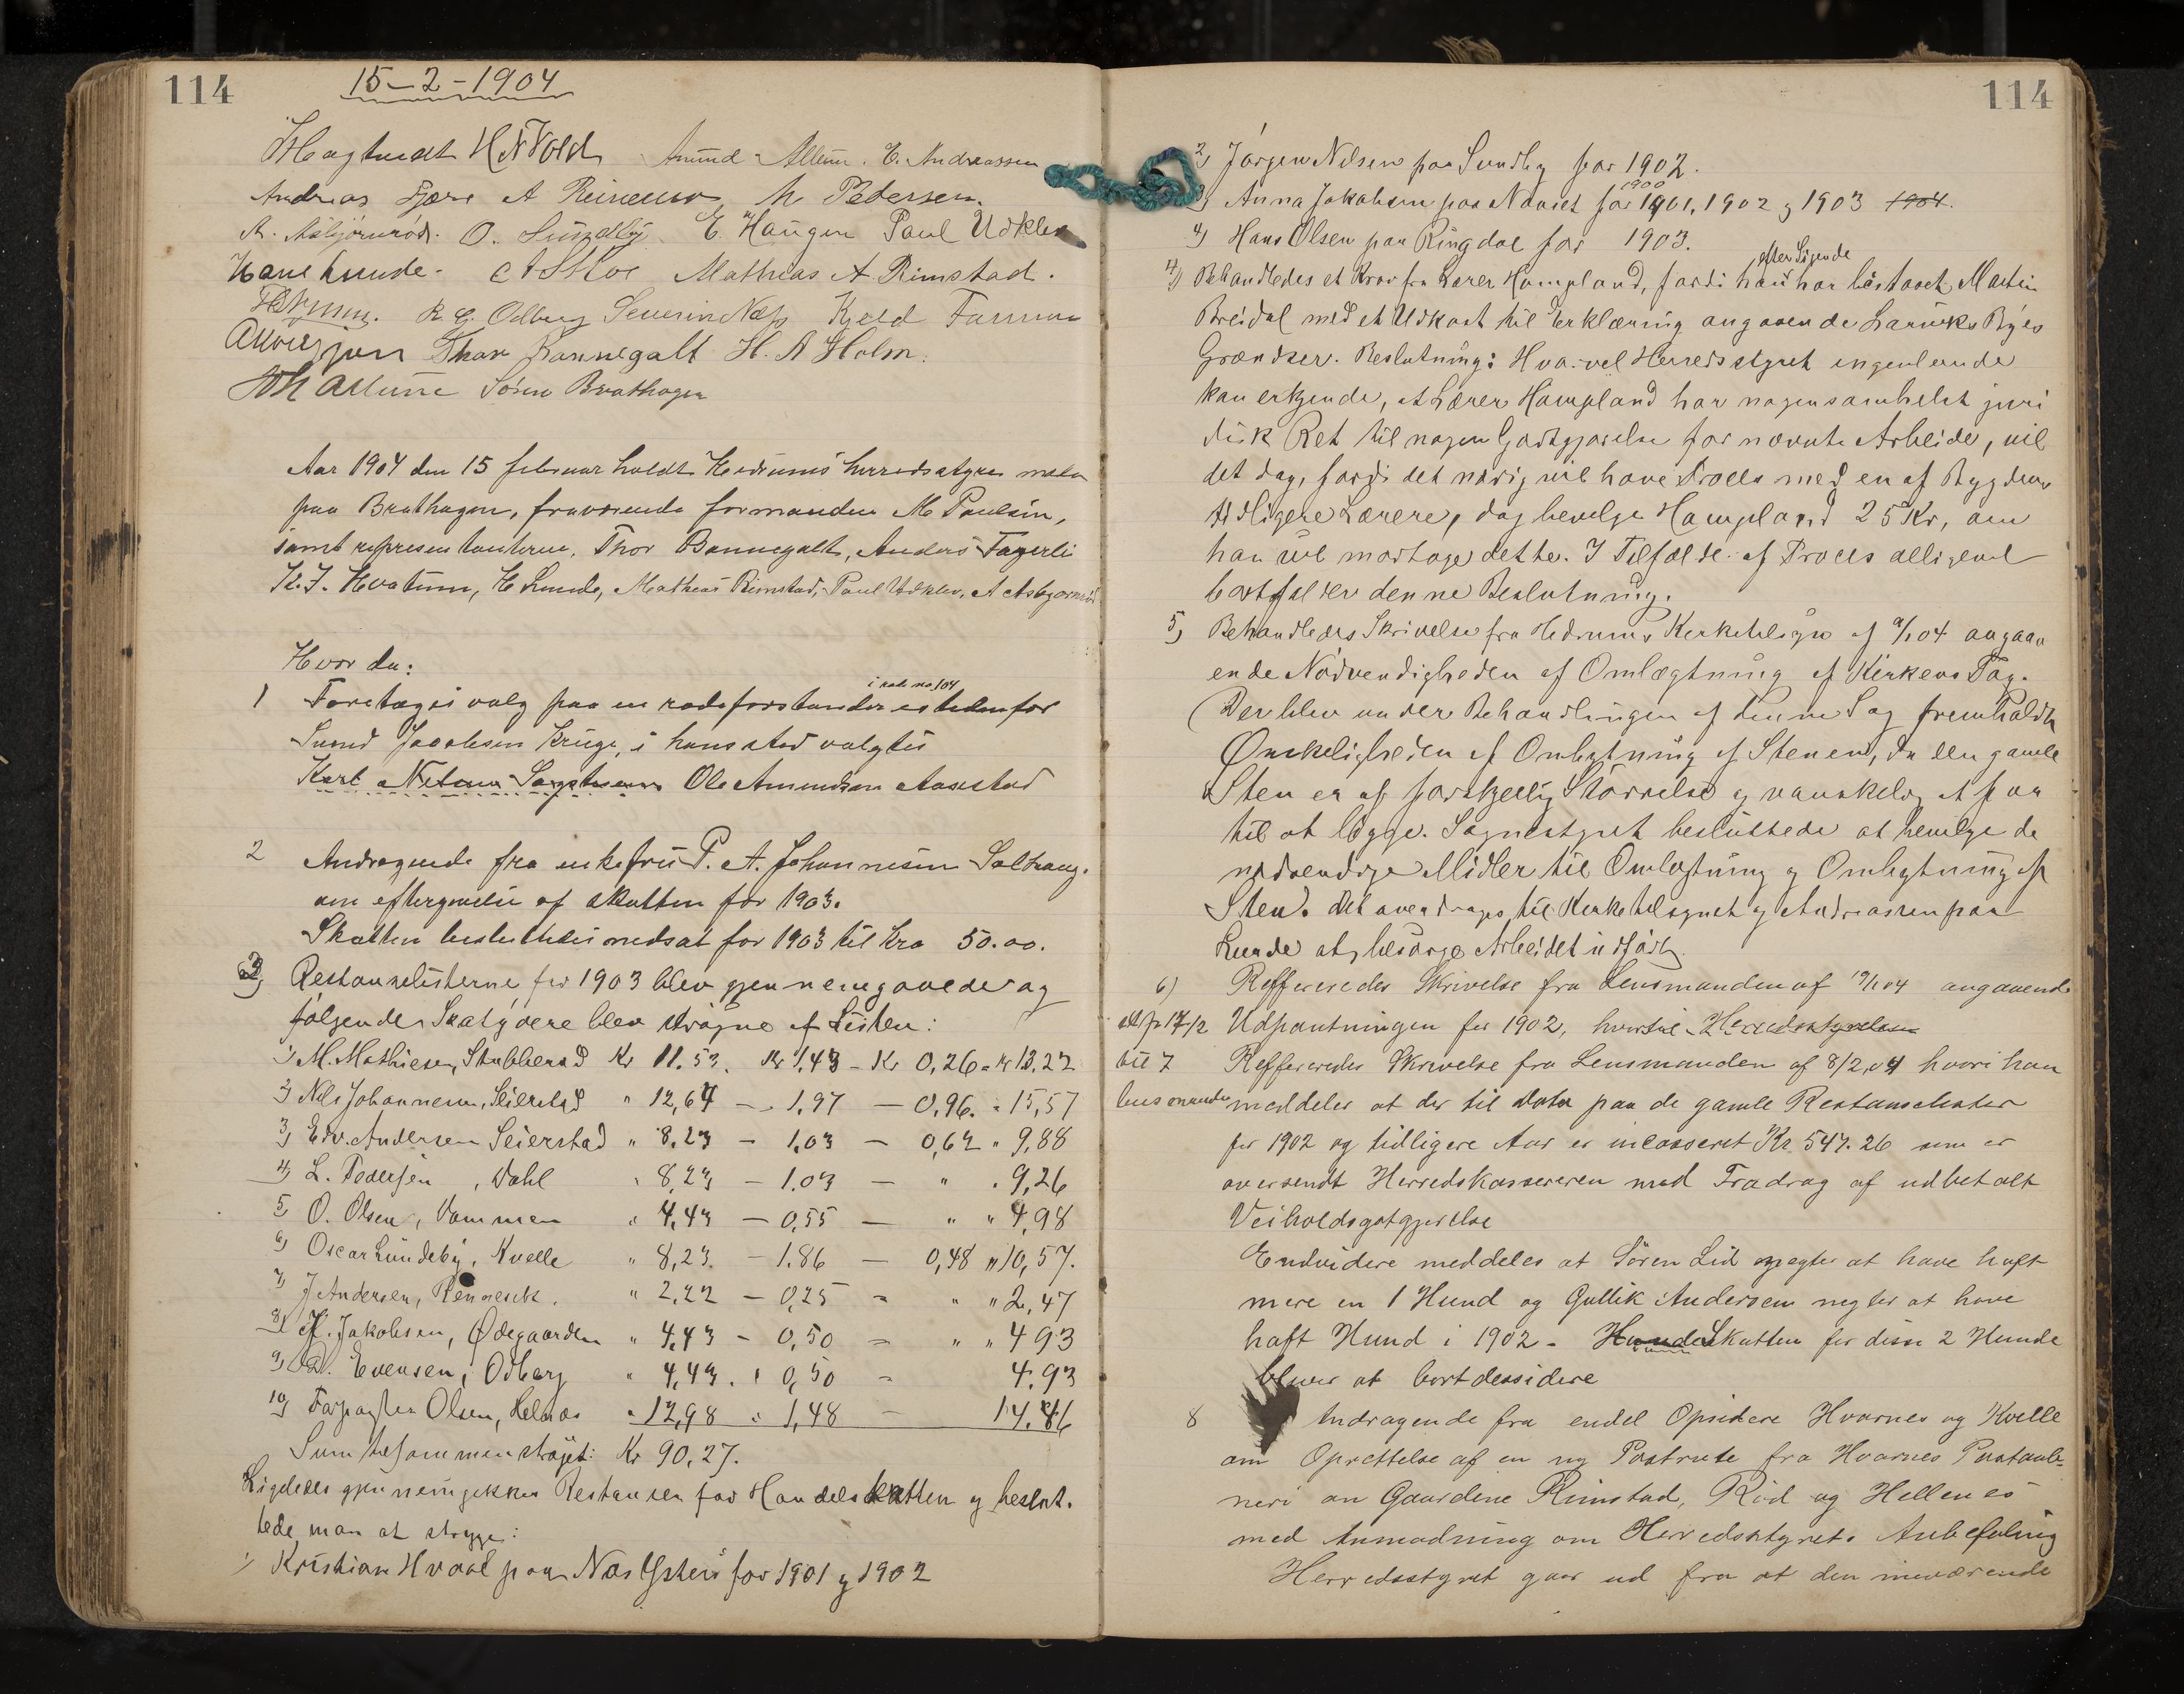 114
15-2-1904
H N Vold Amund Allum. E. Andreassen
Andreas A M Pedersen.
A. Asbjörnröd. O. Sundby E. Haugen Paul Udklev
Hans Lunde. Mathias A Rimstad.
R. G. Odberg Severin Næss Kjeld
Thor Bannegalt H. A Holm.
Allum Sören Brathagen
Aar 1904 den 15 februar holdt Hedrums herredsstyre møde
paa Brathagen, fraværende formanden M Paulsen,
samt representanterne, Thor Bannegalt, Anders Fagerli
K. J. Hvatum, H Lunde, Mathias Rimstad, Paul Udklev, A Asbjørnrød
Hvor da:
i rode no 104
1 Foretoges valg paa en rodeforstander istedenfor
Svend Jacobsen Kruge, i hans sted valgtes
Karl Ole Amundsen Aasestad
2 Andragende fra enkefru P. A. Johannesen
om eftergivelse af skatten for 1903.
Skatten besluttedes nedsat for 1903 til kro 50.00.
3) Restanselisterne for 1903 blev gjennemgaaede og
følgende Skatydere blev strøgne af Listen:
1) M. Mathisen, Stubberød Kr 11.53. Kr 1,43 - Kr 0,26 = Kr 13.22
2) Nils Johannesen, Seierstad " 12,64 - 1,97 - 0,96. = 15,57
3) Edv. Andersen Seierstad " 8.23 - 1.03 - 0,62 " 9,88
4) L. Pedersen, Dahl " 8,23 - 1.03 - " " 9,26
5) O. Olsen, Vammen " 4,43 - 0,55 - " " 4,98
6) Oscar Lundeby, Kvelle " 8,23. - 1.86 - 0,48 " 10,57.
7) J Andersen, " 2,22 - 0,25 - " " 2,47
8) H. Jakobsen, Ødegaarden " 4,43 - 0,50 = " " 4 93
9) Evensen, Odberg " 4,43. " 0,50 - 4.93
10) Forpagter Olsen, Helnæs " 12,98 " 1,48 - 14.46
Sum tilsammen strøget: Kr 90,27.
Ligeledes gjennemgikkes Restansen for Handelsskatten og beslut.
tede man at stryge:
1) Kristian Hvaal paa for 1901 og 1902
114
2) Jørgen Nilsen paa Sundby for 1902.
1900
3) Anna Jakobsen paa Nauset for 1901, 1902 og 1903 1904.
4) Hans Olsen paa Ringdal for 1903.
efter Sigende
4) Behandledes et Krav fra Lærer Hampland, fordi han har bistaaet Martin
Breidal med et Udkast til Erklæring angaaende Larviks Byes
Grændser. Beslutning: Hva-vel Herredsstyret ingenlunde
kan erkjende, at Lærer Hampland har nogensomhelst juri
disk Ret til nogen Godtgjørelse for nævnte Arbeide, vil
det dog, fordi det nødig vil have Proces med en af Bygdens
tidligere Lærere, dog bevilge Hampland 25 Kr, om
han vil modtage dette. I Tilfælde af Proces alligevel
bortfalder denne Beslutning.
5) Behandledes Skrivelse fra Hedrums Kirketilsyn af 9/1 04 angaa
ende Nødvendigheden af Omlægtning af Kirkens Tag.
(Der blev under Behandlingen af denne Sag fremholdt
Ønskeligheden af Ombytning af Stenen, da den gamle
Sten er af forskjellig Störrelse og vanskelig at faa
til at ligge. Sognestyret besluttede at bevilge de
nødvendige Midler til Omlægtning og Ombytning af
Sten. Det overdroges til Kirketilsynet og Andreassen paa
Lunde at besørge Arbeidet udført.
6) Reffereredes Skrivelse fra Lensmanden af 19/1 04 angaaende
17/2 Udpantningen for 1902, hvortil Herredsstyrelsen
til 7 Reffereredes Skrivelse fra Lensmanden af 8/2,04 hvori han
lensmanden meddeler at der til Dato paa de gamle Restanselister
for 1902 og tidligere Aar er incasseret Kr. 547.26 som er
oversendt Herredskassereren med Fradrag af udbetalt
Veiholdsgotgjørelse
Endvidere meddeles at Sören Lid negter at have haft
mere en 1 Hund og Gullik Andersen negter at have
haft Hund i 1902 - Hunde Skatten for disse 2 Hunde
bliver at bortdessidere
8 Andragende fra endel Opsidere Hvarnes og Kvelle
om Oprettelse af en ny Postrute fra Hvarnes Postaab-
neri om Gaardene Rimstad, Röd og Hellenes
med Anmodning om Herredsstyrets Anbefaling
Herredsstyret gaar ud fra at den nuværende